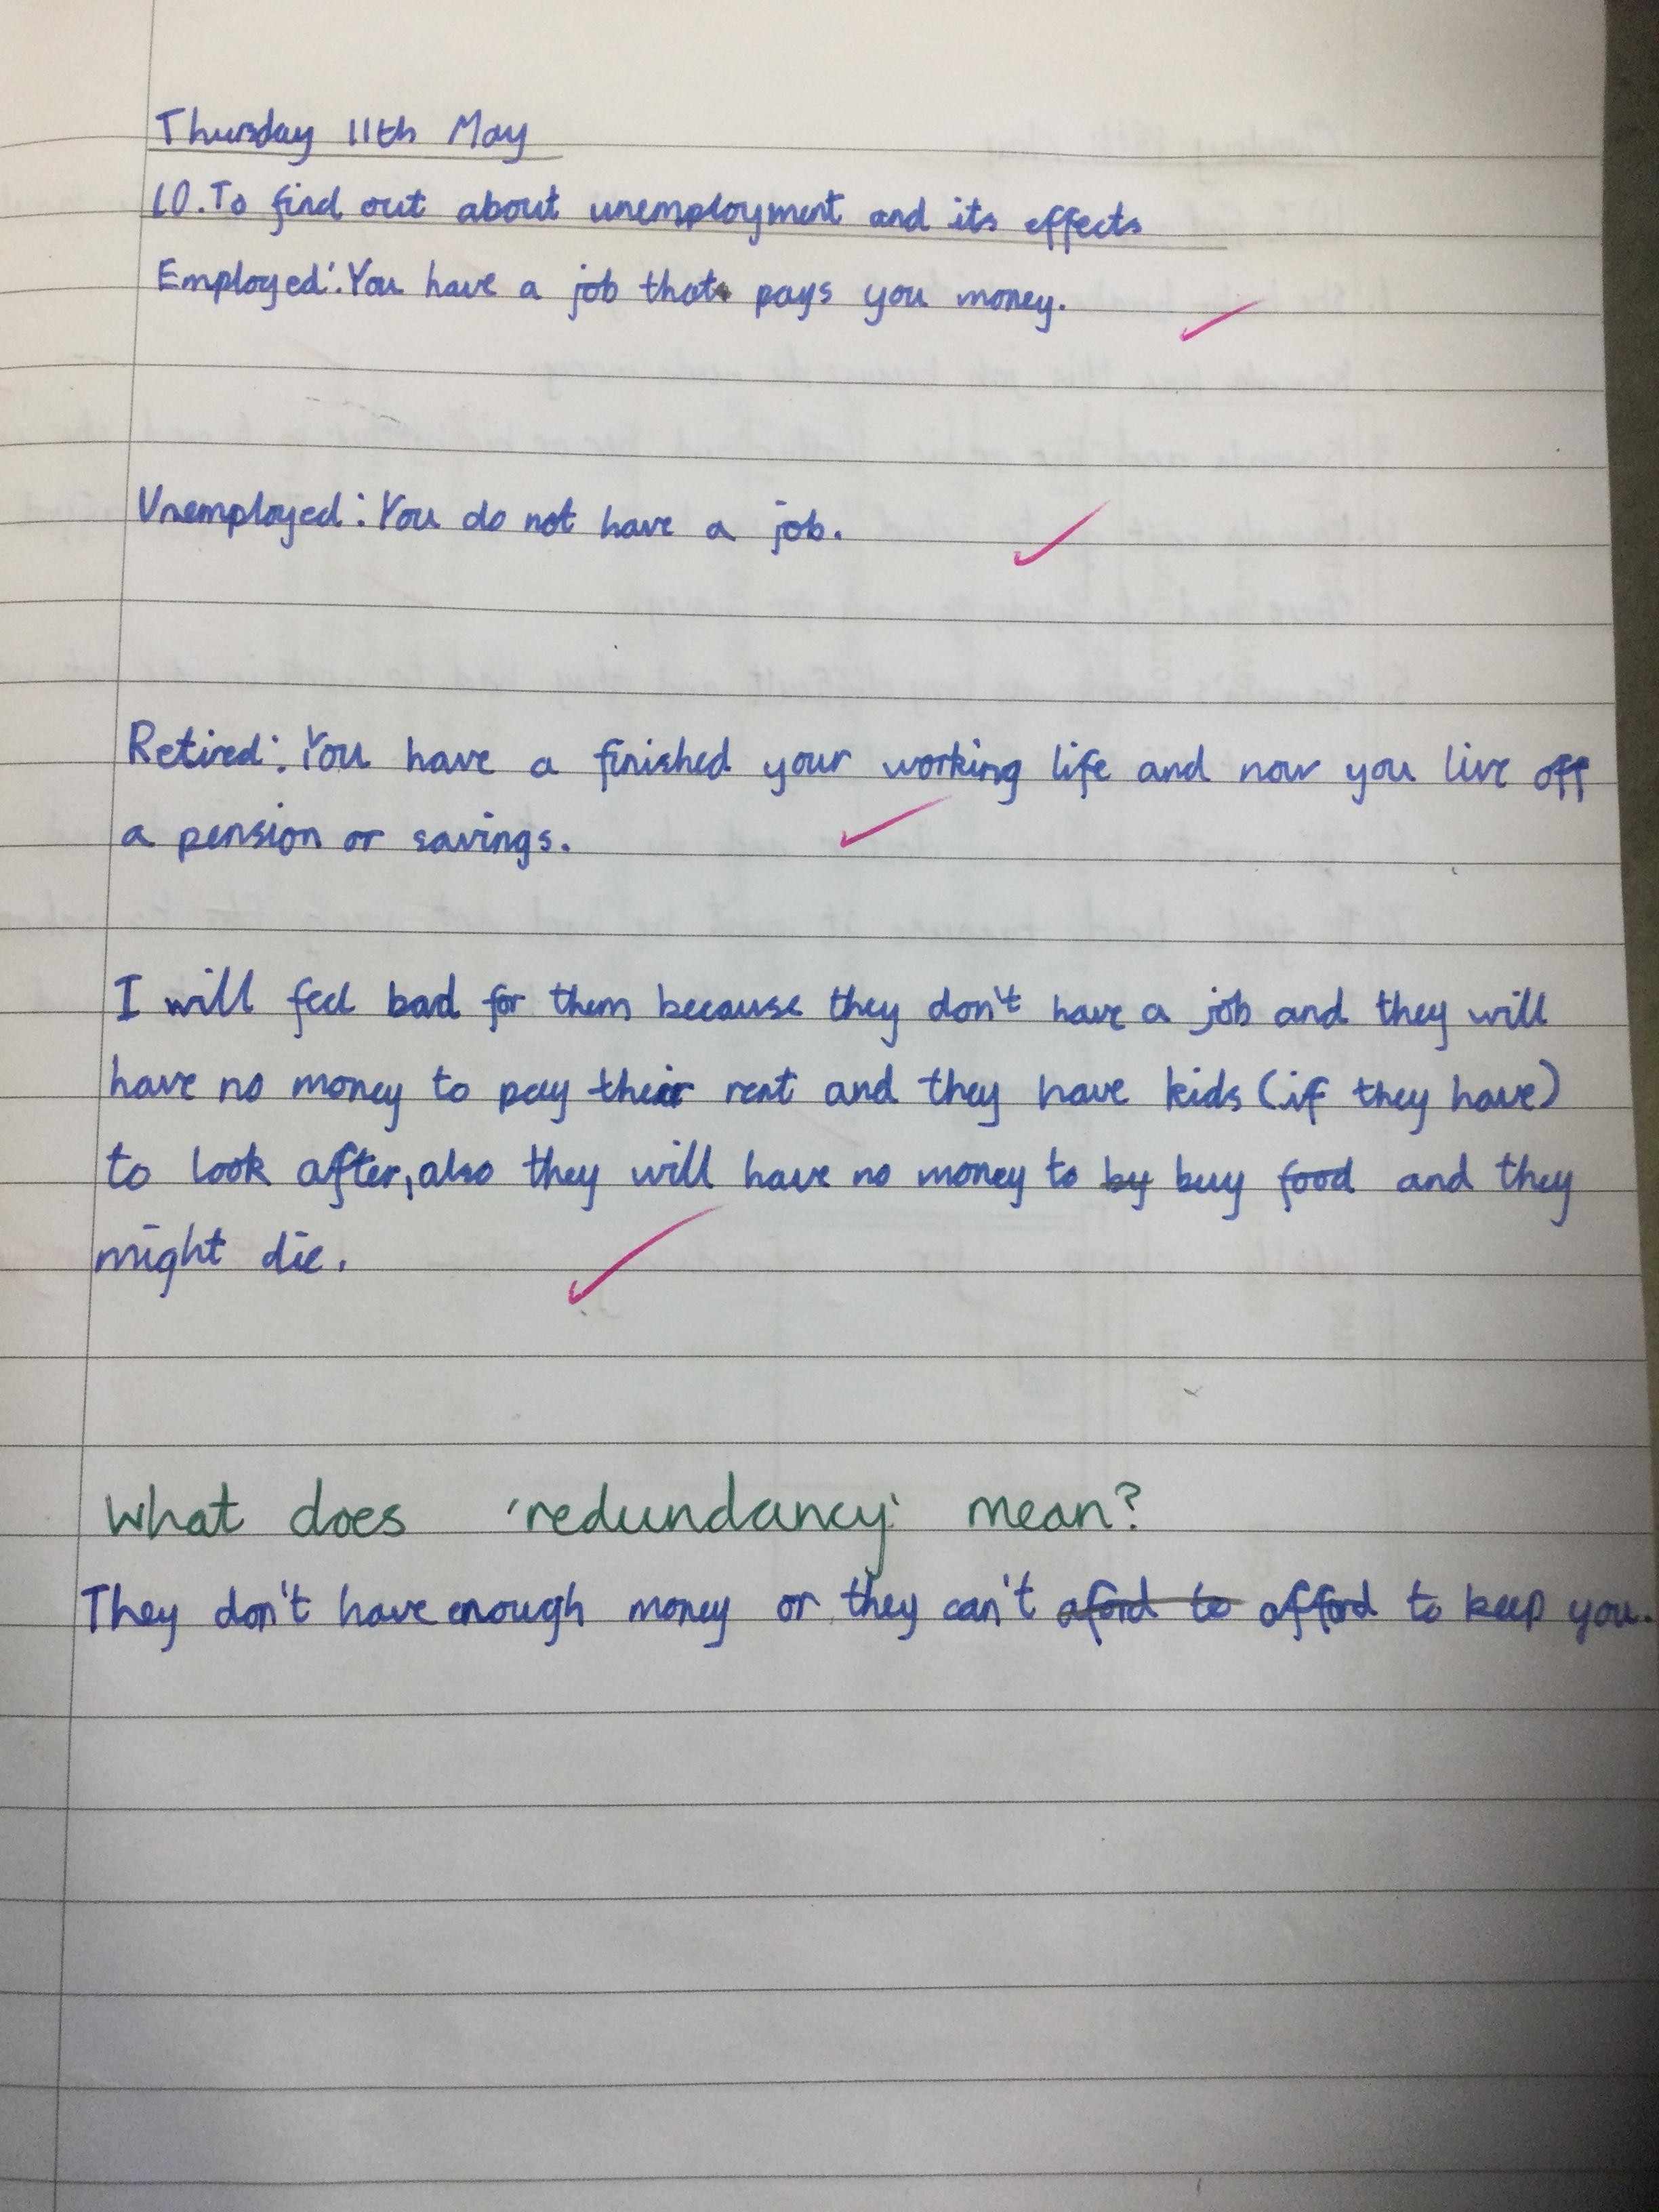 Thursday 11th May
LO.To find out about unemployment and its effects
Employed:You have a job that pays you money.
Unemployed:You do not have a job.
Retired:You have a finished your working life and now you live off
a pension or savings.
I will feel bad for them because they don't have a job and they will
have no money to pay their rent and they have kids (if they have)
to look after, also they will have no money to by buy food and they
might die.
What does 'redundancy' mean?
They don't have enough money or they can't aford to afford to keep you.